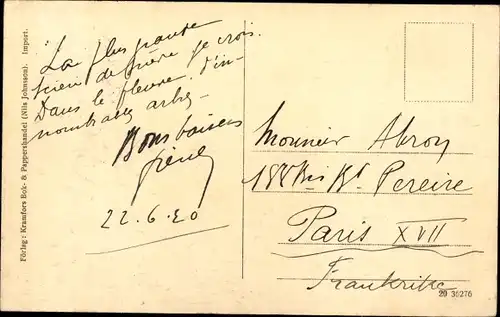 La plus grande
scierie de Suède je crois.
Dans le fleuve. d'in-
nombrables arbres -
Bons baisers
22.6.20
Monsieur
188 bis Bd Pereire
Paris XVII
Frankrike
20 36276
Förlag: Kramfors Bok- & Pappershandel (Nils Johnsson). Import.